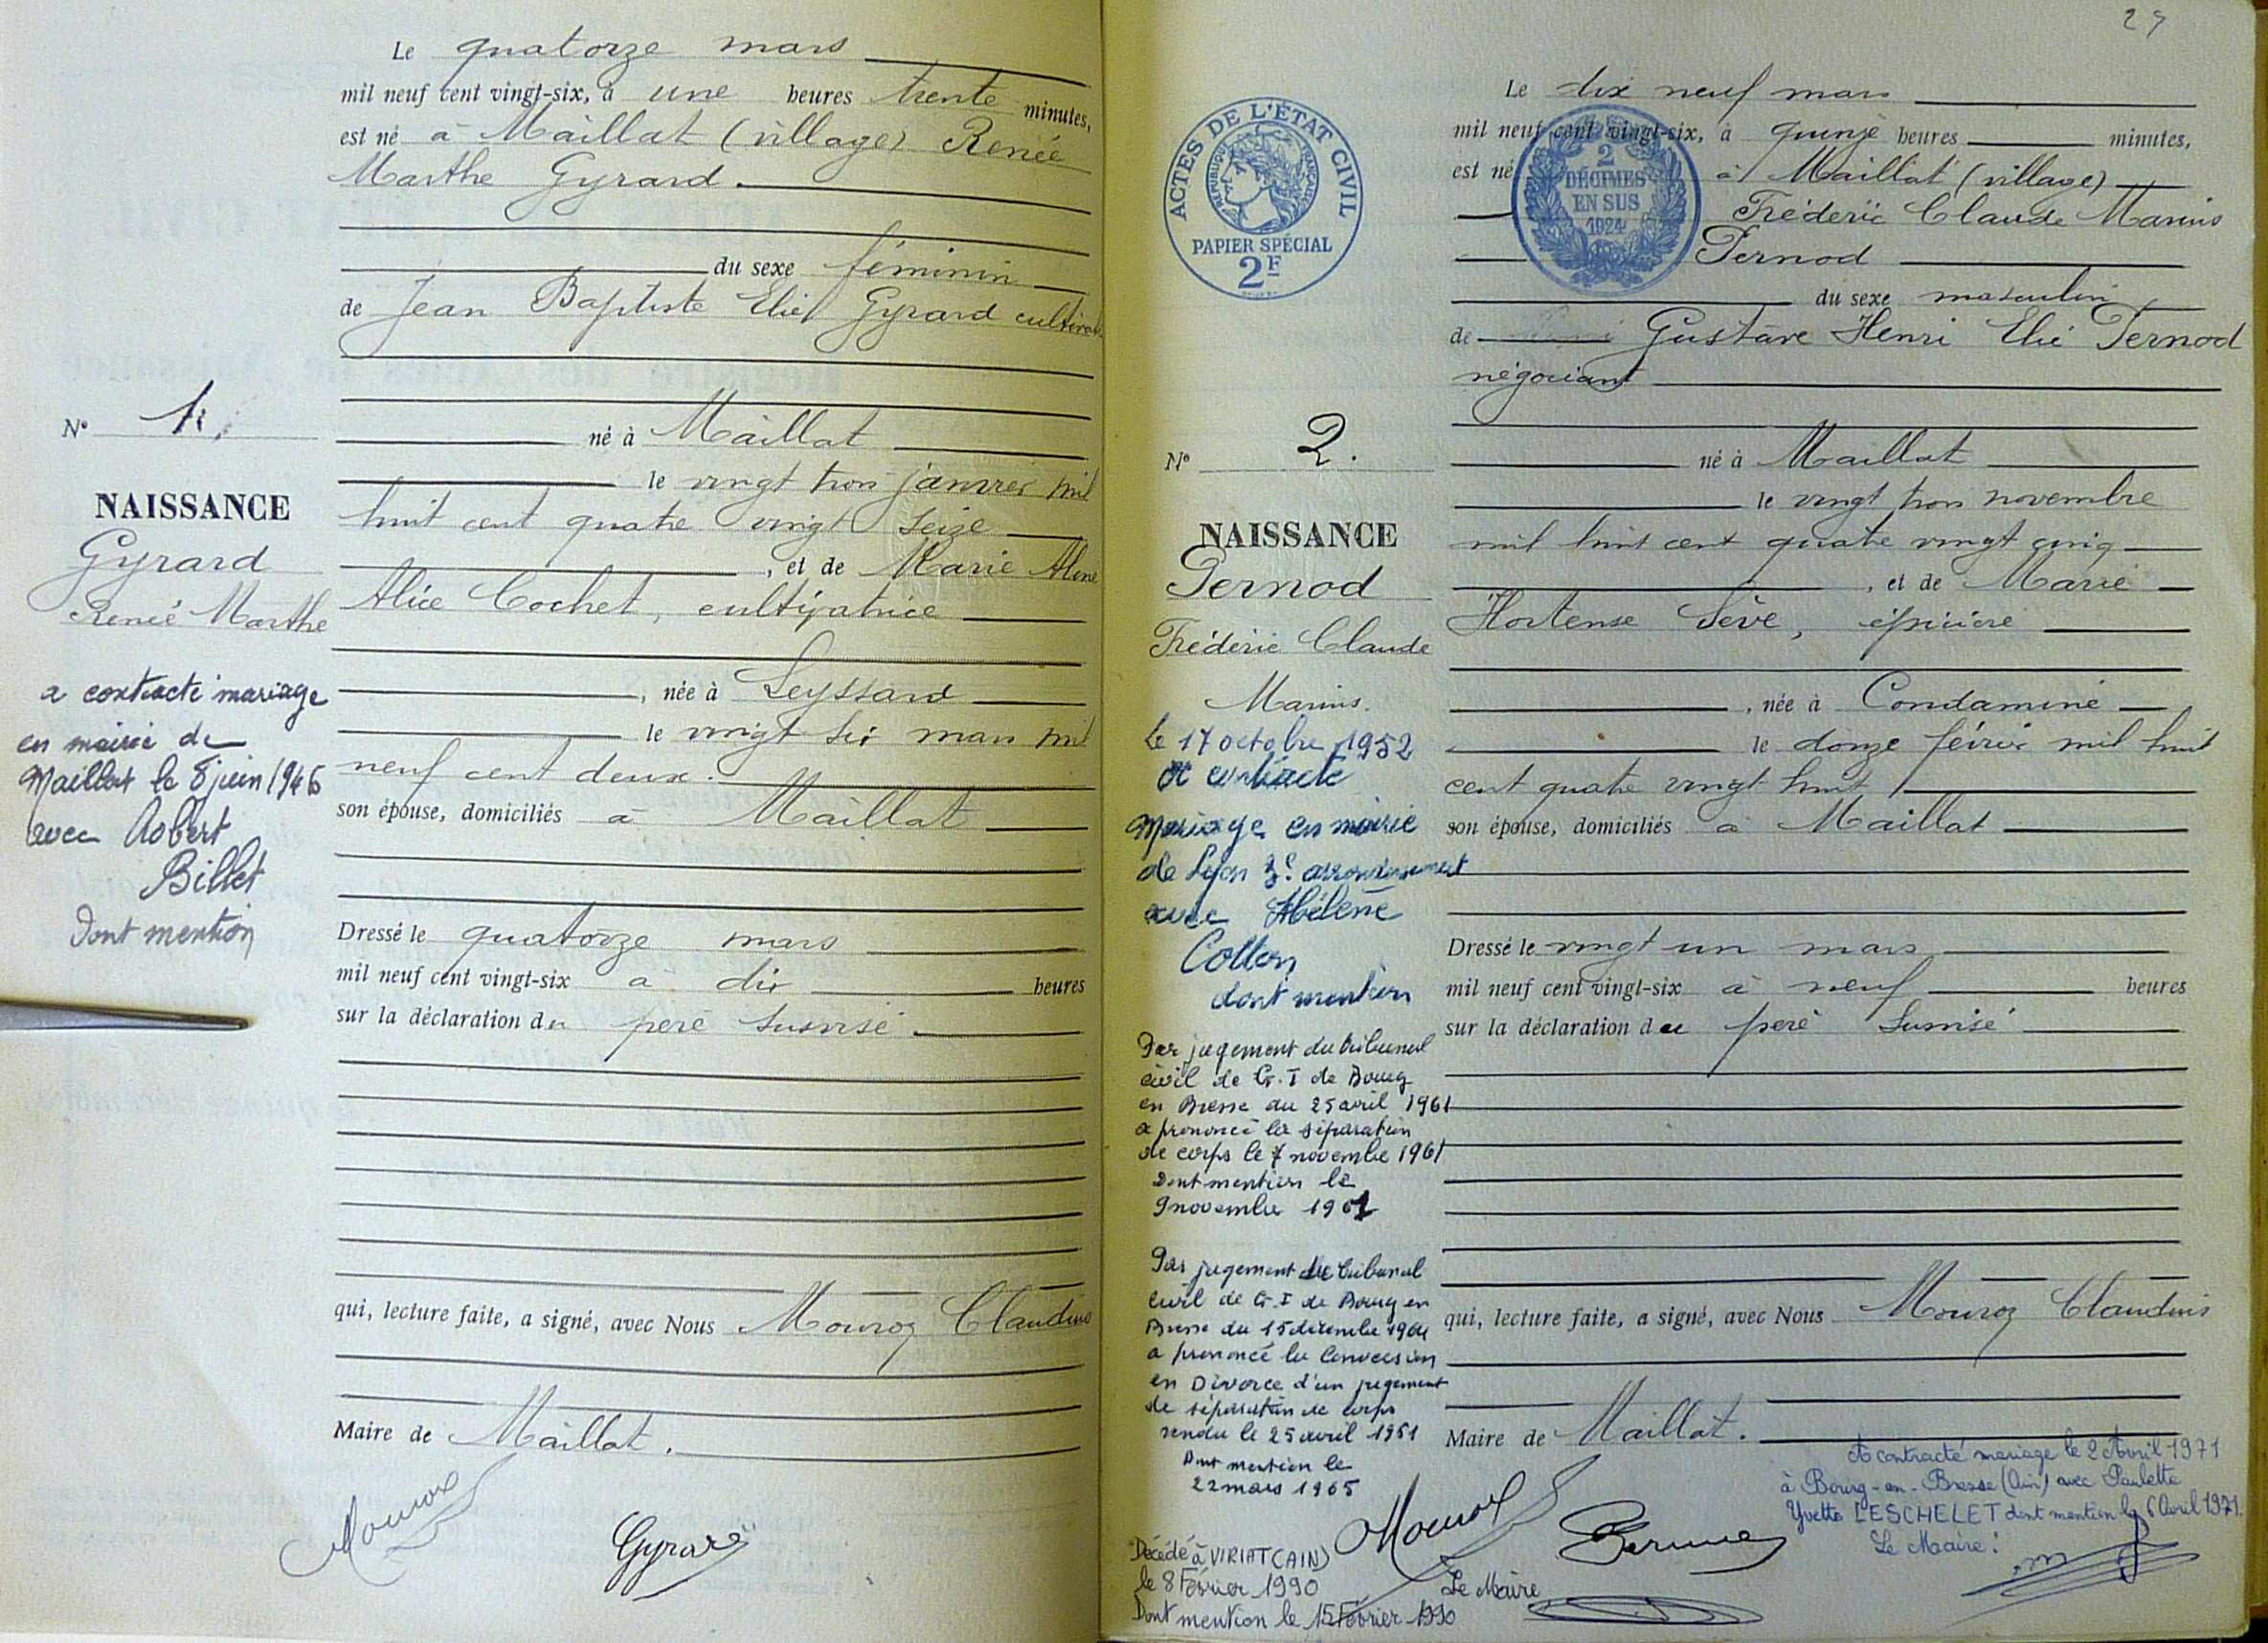 Le quatorze mars
mil neuf cent vingt-six, à une heures trente minutes,
est né à Maillat (village) Renée
Marthe Gyrard.
du sexe féminin
de Jean Baptiste Elie Gyrard
né à Maillat
le vingt trois janvier mil
huit cent quatre vingt seize
, et de Marie Aline
Alice Cochet, cultivatrice
, née à Leyssard
le vingt six mars mil
neuf cent deux.
son épouse, domiciliés à Maillat
Dressé le quatorze mars
mil neuf cent vingt-six à dix heures
sur la déclaration du père susvisé
qui, lecture faite, a signé, avec Nous Mouroz Claudius
Maire de Maillat.
Mouroz
Gyrard
N° 1.
NAISSANCE
Gyrard
Renée Marthe
a contracté mariage
en mairie de
Maillat le 8 juin 1946
avec Robert
Billet
Dont mention
29
ACTES DE L'ÉTAT CIVIL
RÉPUBLIQUE FRANÇAISE
PAPIER SPÉCIAL
2F
2
DÉCIMES
EN SUS
1924
Le dix neuf mars
mil neuf cent vingt-six, à quinze heures minutes,
est né à Maillat (village)
Fréderic Claude Marius
Pernod
du sexe masculin
de Gustave Henri Elie Pernod
négociant
né à Maillat
le vingt trois novembre
mil huit cent quatre vingt cinq
, et de Marie
Hortense Sève, épicière
, née à Condamine
le douze février mil huit
cent quatre vingt huit
son épouse, domiciliés à Maillat
Dressé le vingt un mars
mil neuf cent vingt-six à neuf heures
sur la déclaration du père susvisé
qui, lecture faite, a signé, avec Nous Mouroz Claudius
Maire de Maillat.
Mouroz
N° 2.
NAISSANCE
Pernod
Fréderic Claude
Marius.
Le 17 octobre 1952
a contracté
mariage en mairie
de Lyon 3e arrondissement
avec Hélène
Colton
dont mention
Par jugement du tribunal
civil de G.I de Bourg
en Bresse du 25 avril 1961
a prononcé la séparation
de corps le 7 novembre 1961
Dont mention le
9 novembre 1961
Par jugement du tribunal
civil de G.I de Bourg en
Bresse du 15 décembre 1964
a prononcé la conversion
en Divorce d'un jugement
de séparation de corps
rendu le 25 avril 1961
Dont mention le
22 mars 1965
Décédé à VIRIAT (AIN)
le 8 Février 1990
Dont mention le 15 Février 1990
Le Maire
A contracté mariage le 2 Avril 1971
à Bourg-en-Bresse (Ain) avec Paulette
Yvette LESCHELET dont mention le 6 Avril 1971.
Le Maire :